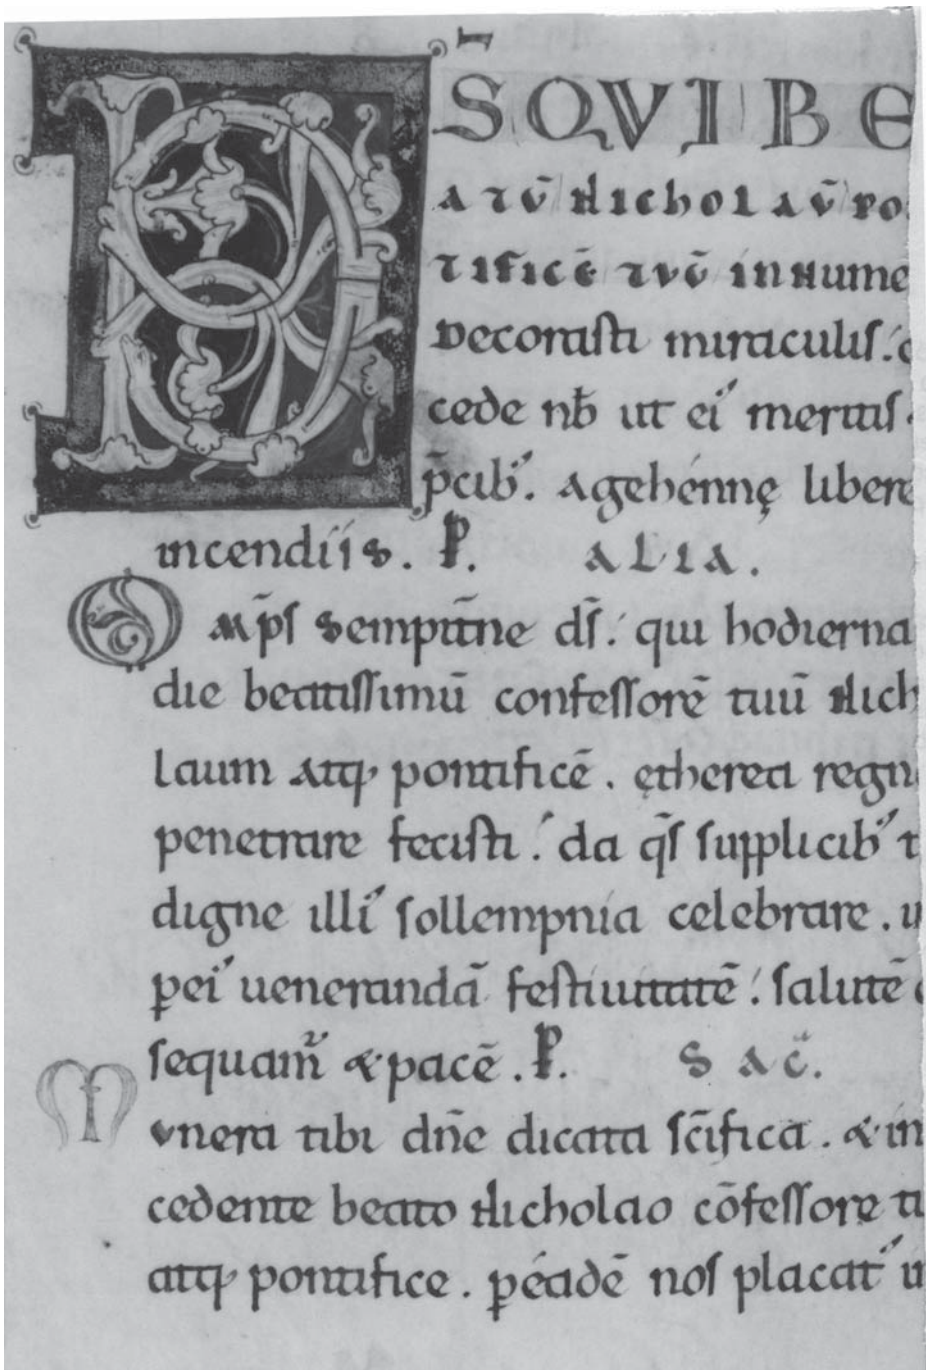 DSQVIBE
ATŪ NICHOLAŪ PO
TIFICĒ TVŪ INNUME
Decorasti miraculis. c
cede nb̄ ut ei' meritis.
p̄cib'. Agehennę libere
incendiis. P. ALIA.
OMp̄s Sempit̄ne ds̄. qui hodierna
die beatissimū confessorē tuū Nich
laum Atq; pontificē. ętherea regn
penetrare fecisti. da q̄s supplicib' t
digne illi' sollempnia celebrare. u
p̱ei' uenerandā festiuitatē. salutē c
sequam̄ &pacē. P. SAC̄.
MVnera tibi dn̄e dicata sc̄ifica. &in
cedente beato Nicholao cōfessore tu
atq; pontifice. p̱eadē nos placat' in